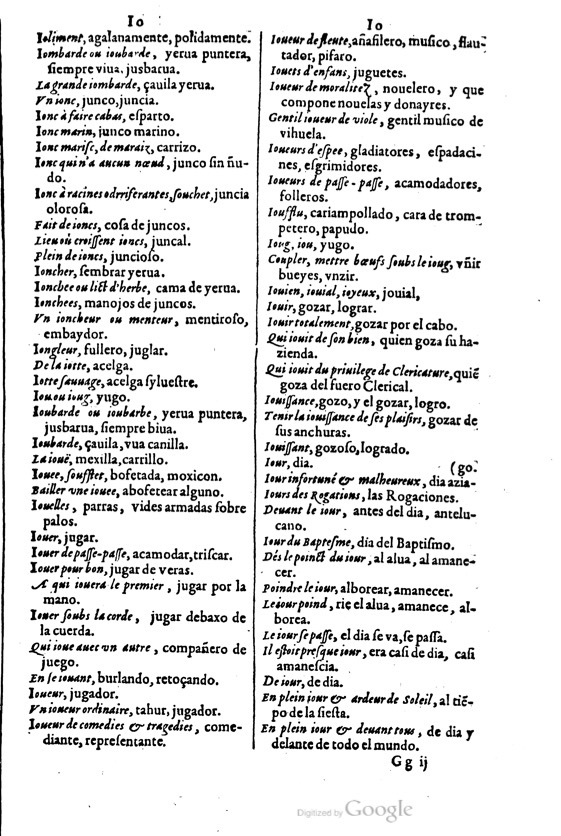 Io
Ioliment, agalanamente, polidamente.
Iombarde ou ioubarde, yerua puntera,
ſiempre viua, jusbarua.
La grande iombarde, çauila yerua.
Vn ionc, junco, juncia.
Ionc à faire cabas, eſparto.
Ionc marin, junco marino.
Ionc mariſc, de maraiz, carrizo.
Ionc qui n'a aucun nœud, junco ſin ñu-
do.
Ionc à racines odrriferantes, ſouchet, juncia
oloroſa.
Fait de ioncs, coſa de juncos.
Lieu où croiſſent ioncs, juncal.
Plein de ioncs, juncioſo.
Ioncher, ſembrar yerua.
Ionchee ou lict d'herbe, cama de yerua.
Ionchees, manojos de juncos.
Vn ioncheur ou menteur, mentiroſo,
embaydor.
Iongleur, fullero, juglar.
De la iotte, acelga.
Iotte ſauuage, acelga ſylueſtre.
Iou ou ioug, yugo.
Ioubarde ou ioubarbe, yerua puntera,
jusbarua, ſiempre biua.
Ioubarde, çauila, vua canilla.
La iouë, mexilla, carrillo.
Iouee, ſoufflet, bofetada, moxicon.
Bailler vne iouee, abofetear alguno.
Iouelles, parras, vides armadas ſobre
palos.
Iouer, jugar.
Iouer de paſſe-paſſe, acamodar, triſcar.
Iouer pour bon, jugar de veras.
A qui iouera le premier, jugar por la
mano.
Iouer ſoubs la corde, jugar debaxo de
la cuerda.
Qui ioue auec vn autre, compañero de
juego.
En ſe iouant, burlando, retoçando.
Ioueur, jugador.
Vn ioueur ordinaire, tahur, jugador.
Ioueur de comedies & tragedies, come-
diante, repreſentante.
Io
Ioueur de fleute, añafilero, muſico, flau-
tador, pifaro.
Iouets d'enfans, juguetes.
Ioueur de moralitez, nouelero, y que
compone nouelas y donayres.
Gentil ioueur de viole, gentil muſico de
vihuela.
Ioueurs d'eſpee, gladiatores, eſpadaci-
nes, eſgrimidores.
Ioueurs de paſſe-paſſe, acamodadores,
folleros.
Iouſflu, cariampollado, cara de trom-
petero, papudo.
Ioug, iou, yugo.
Coupler, mettre bœufs ſoubs le ioug, vñir
bueyes, vnzir.
Iouien, iouial, ioyeux, jouial,
Iouir, gozar, lograr.
Iouir totalement, gozar por el cabo.
Qui iouit de ſon bien, quien goza ſu ha-
zienda.
Qui iouit du priuilege de Clericature, quiẽ
goza del fuero Clerical.
Iouiſſance, gozo, y el gozar, logro.
Tenir la iouiſſance de ſes plaiſirs, gozar de
ſus anchuras.
Iouiſſant, gozoſo, logrado.
Iour, dia. (go.
Iour infortuné & malheureux, dia azia-
Iours des Rogations, las Rogaciones.
Deuant le iour, antes del dia, antelu-
cano.
Iour du Bapteſme, dia del Baptiſmo.
Dés le poinct du iour, al alua, al amane-
cer.
Poindre le iour, alborear, amanecer.
Le iour poind, rie el alua, amanece, al-
borea.
Le iour ſe paſſe, el dia ſe va, ſe paſſa.
Il eſtoit preſque iour, era caſi de dia, caſi
amaneſcia.
De iour, de dia.
En plein iour & ardeur de Soleil, al tiẽ-
po de la ſieſta.
En plein iour & deuant tous, de dia y
delante de todo el mundo.
Gg ij
Digitized by Google